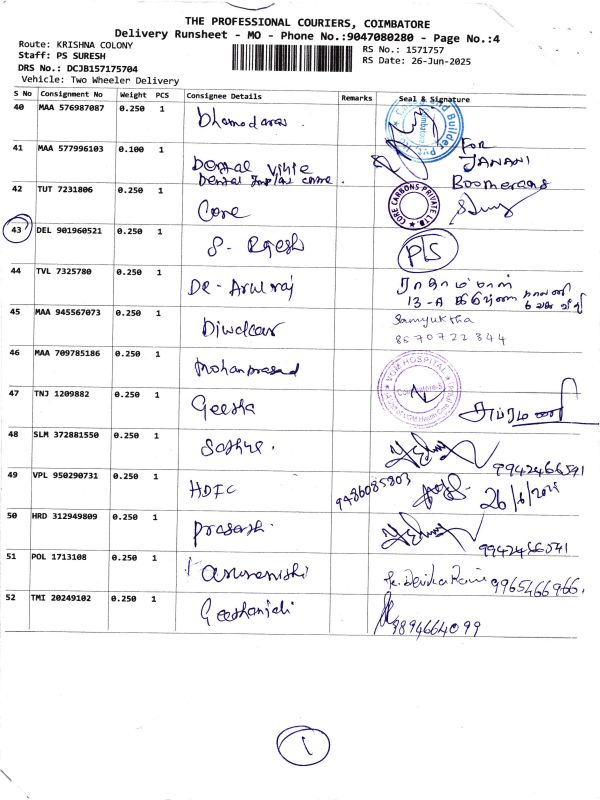 THE PROFESSIONAL COURIERS, COIMBATORE
Delivery Runsheet - MO - Phone No.:9047080280 - Page No.:4
Route: KRISHNA COLONY
RS No.: 1571757
Staff: PS SURESH
RS Date: 26-Jun-2025
DRS No.: DCJB157175704
Vehicle: Two Wheeler Delivery
S No Consignment No Weight PCS Consignee Details Remarks Seal & Signature
40 MAA 576987087 0.250 1
41 MAA 577996103 0.100 1 For
JANANI
Dental
42 TUT 7231806 0.250 1 Core Boomerang
CORE CARBONS PRIVATE LTD.
43 DEL 901960521 0.250 1 S. Rajesh P/S
44 TVL 7325780 0.250 1 Dr - Arulraj
13-A
45 MAA 945567073 0.250 1 Diwakar Samyuktha
8570722344
46 MAA 709785186 0.250 1 Mohanprasad
VGM HOSPITAL
47 TNJ 1209882 0.250 1 Geetha
48 SLM 372881550 0.250 1 9942466541
49 VPL 950290731 0.250 1 HDFC 9486085803 26/6/2025
50 HRD 312949809 0.250 1 Prasath. 9942466541
51 POL 1713108 0.250 1 9965466966.
52 TMI 20249102 0.250 1 Geethanjali 9894664099
1